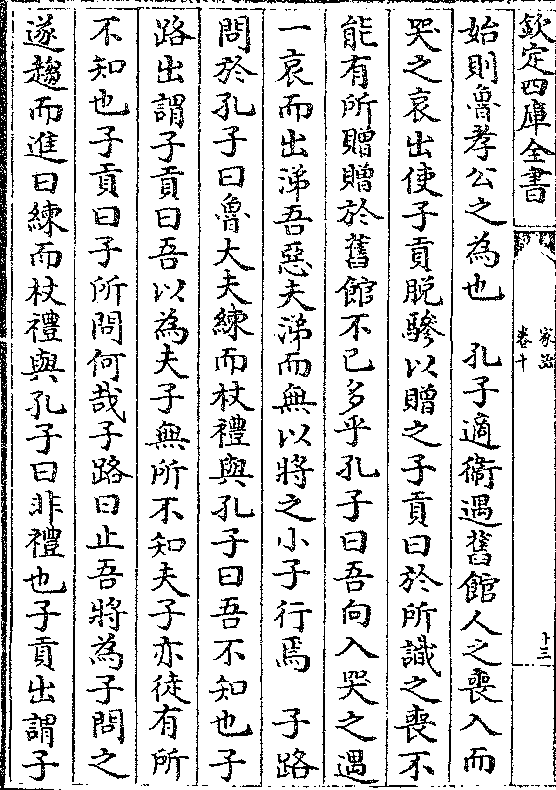 欽定四庫全書
家語
卷十
十三
始則魯孝公之為也　孔子適衛遇舊館人之喪入而
哭之哀出使子貢脱驂以贈之子貢曰於所識之喪不
能有所贈贈於舊館不已多乎孔子曰吾向入哭之遇
一哀而出涕吾惡夫涕而無以將之小子行焉　子路
問於孔子曰魯大夫練而杖禮與孔子曰吾不知也子
路出謂子貢曰吾以為夫子無所不知夫子亦徒有所
不知也子貢曰子所問何哉子路曰止吾將為子問之
遂趨而進曰練而杖禮與孔子曰非禮也子貢出謂子